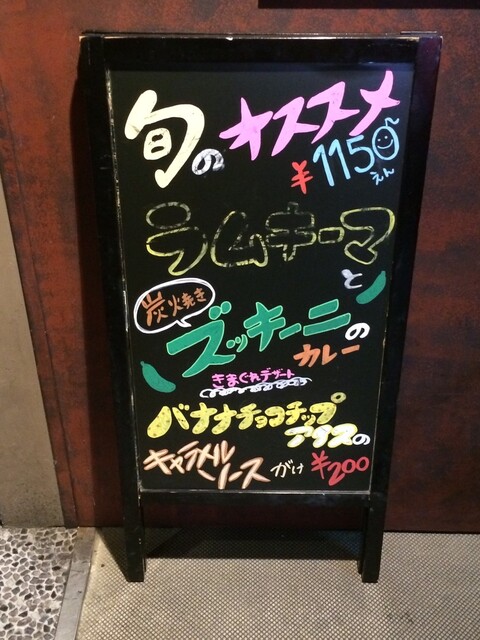 旬のオススメ
¥1150
えん
ラムキーマ
と
炭火焼き
ズッキーニの
カレー
きまぐれデザート
バナナチョコチップ
アイスの
キャラメル
ソースがけ ¥200